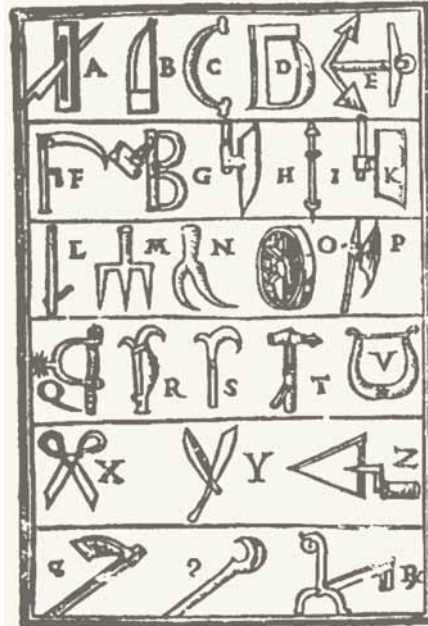 A B C D E
F G H I K
L M N O P
Q R S T V
X Y Z
? ℞